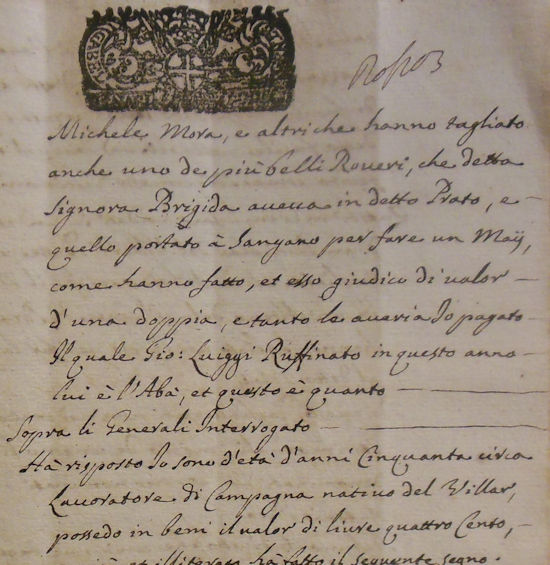 Michele Mora, e altri che hanno tagliato
anche uno de più belli Roveri, che detta
Signora Brigida aueua in detto Prato, e
quello portato à Sangano per fare un Maÿ,
come hanno fatto, et esso giudico di ualor
d'una doppia, e tanto le aueria Io pagato
Il quale Gio: Luiggi Ruffinato in questo anno
lui è l'Abà, et questo è quanto
Sopra li Generali Interrogato
Hà risposto Io sono d'età d'anni Cinquanta circa
Lauoratore di Campagna natiuo del Villar,
possedo in beni il ualor di liure quattro Cento,
et illiterato hà fatto il seguente segno.